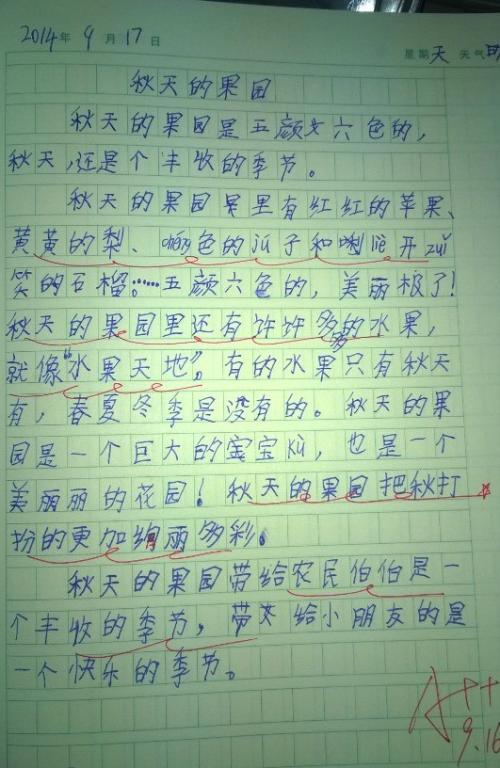 2014年 9月 17日 星期天 天气
秋天的果园
秋天的果园是五颜六色的,
秋天,还是个丰收的季节。
秋天的果园里有红红的苹果、
黄黄的梨、 色的jú子和咧liě开zuǐ
笑的石榴……五颜六色的,美丽极了!
秋天的果园里还有许许多多的水果,
就像“水果天地”。有的水果只有秋天
有,春夏冬季是没有的。秋天的果
园是一个巨大的宝宝kù,也是一个
美丽丽的花园!秋天的果园把秋打
扮的更加绚丽多彩。
秋天的果园带给农民伯伯是一
个丰收的季节,带给小朋友的是
一个快乐的季节。
A++
9.16